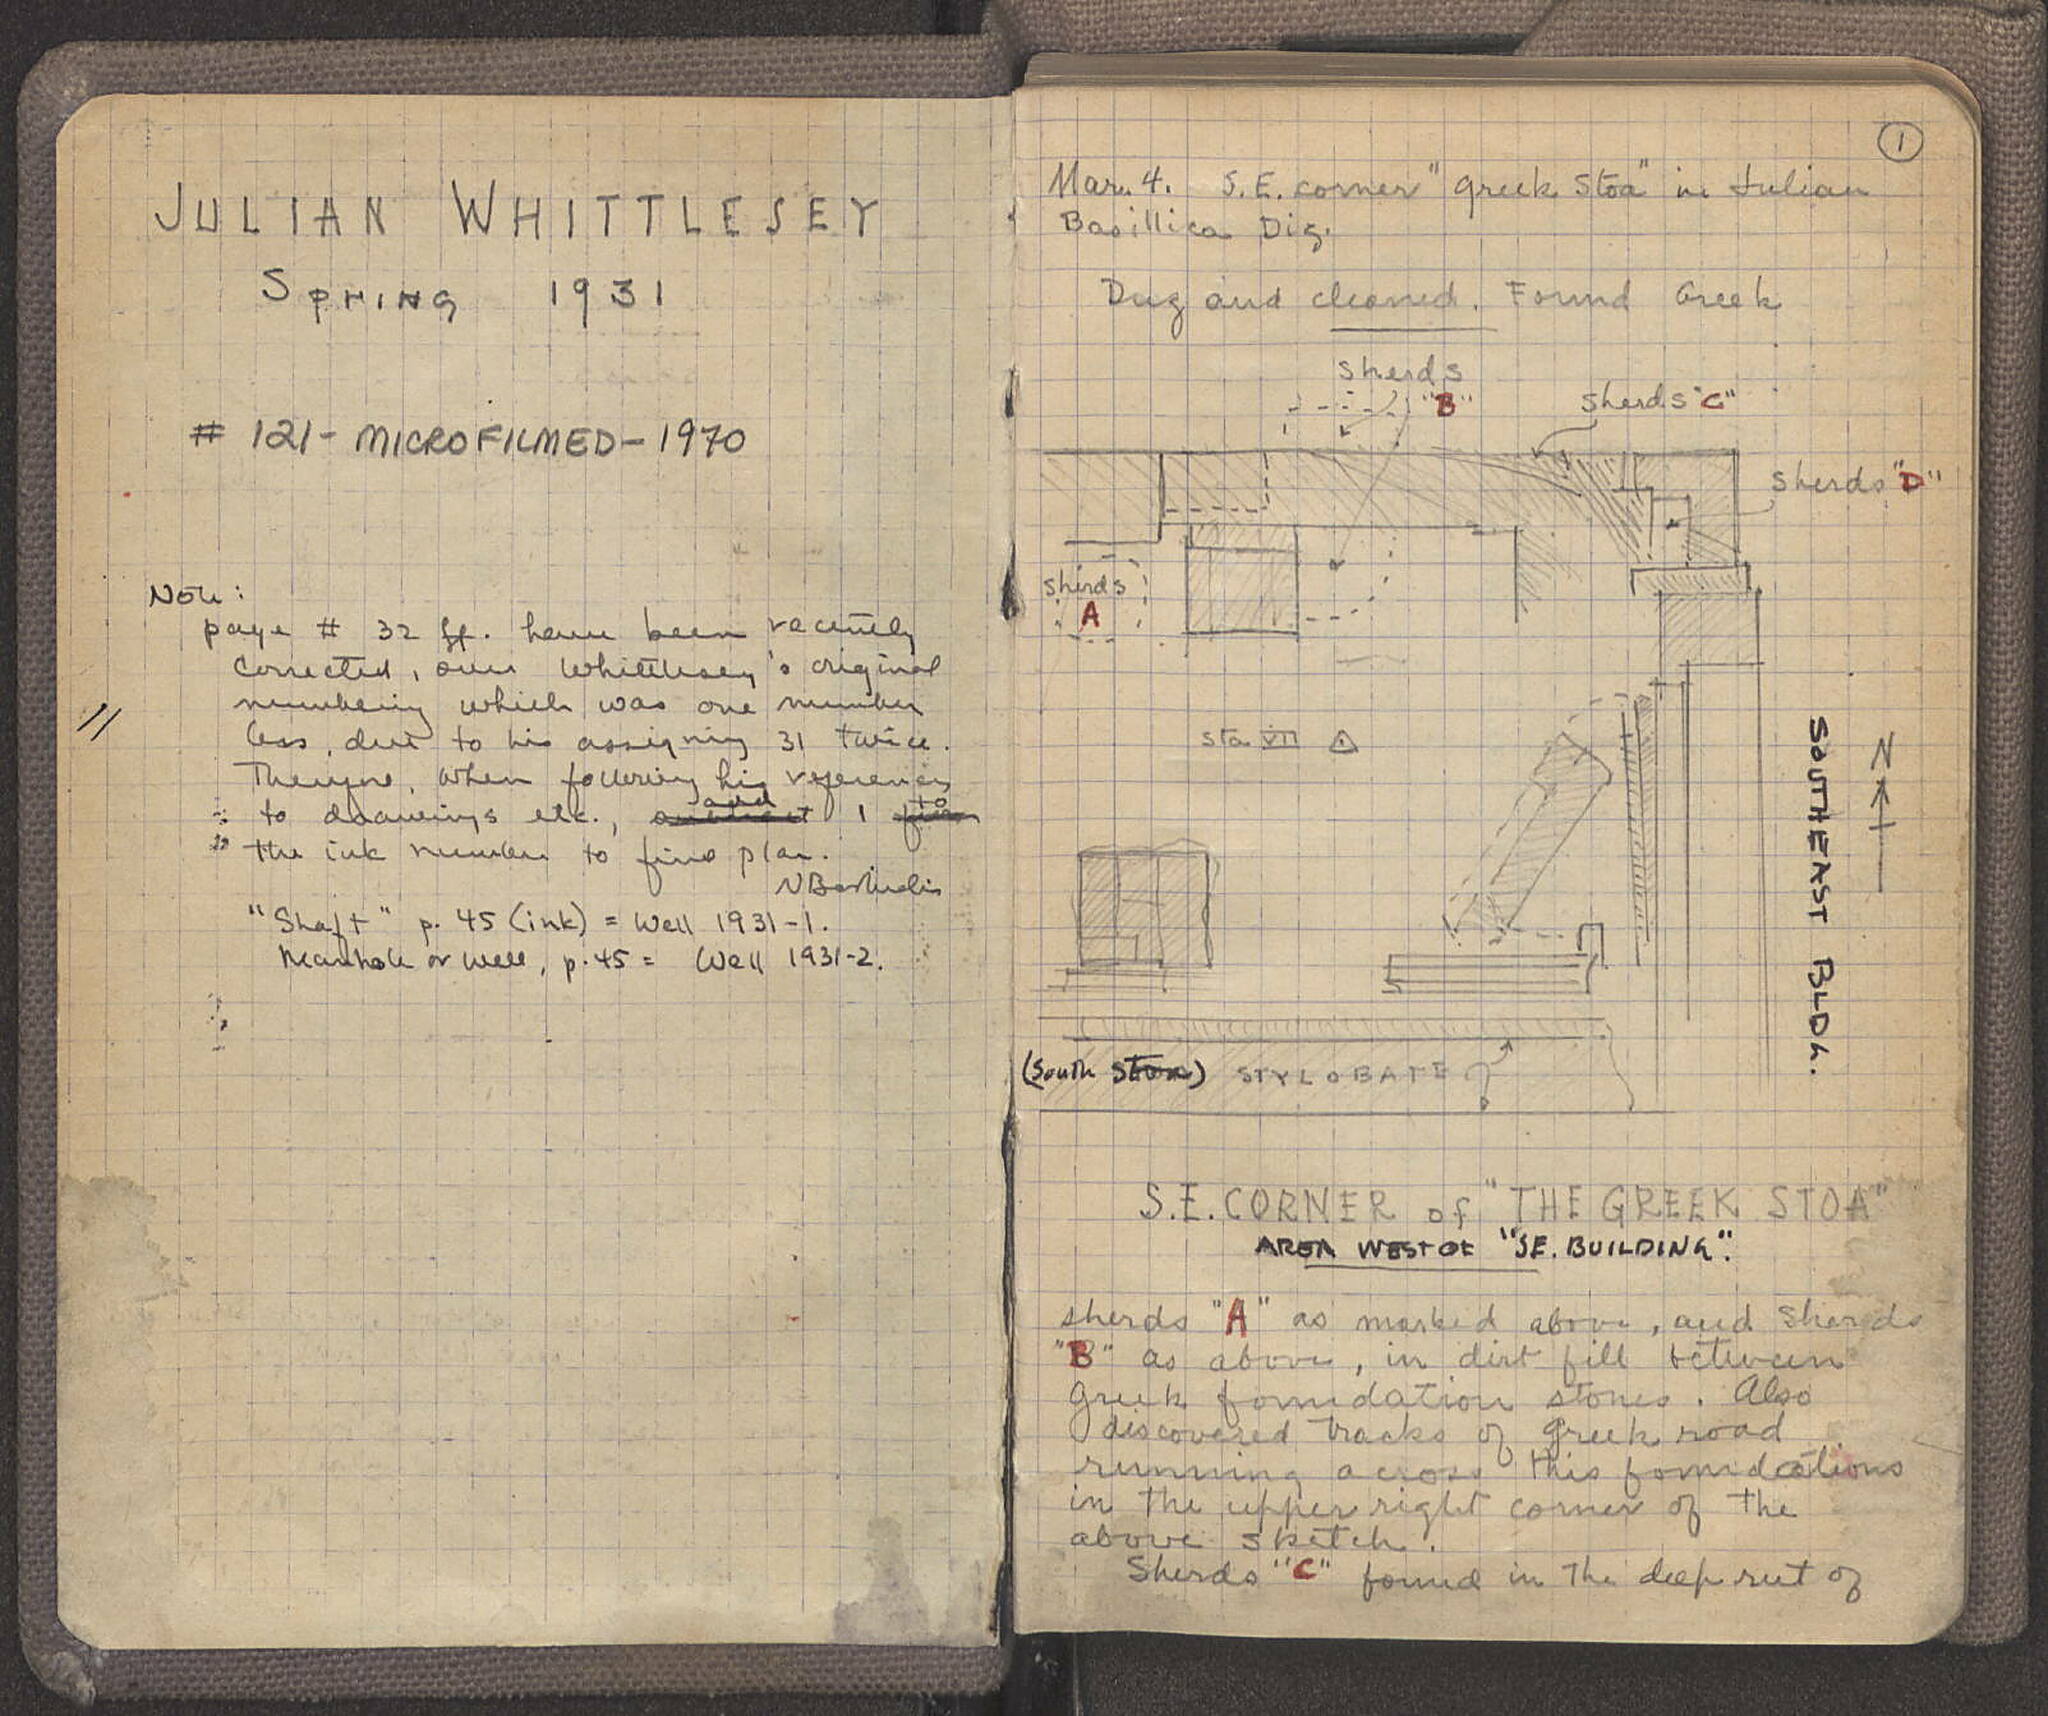 JULIAN WHITTLESEY
SPRING 1931
# 121 - MICROFILMED - 1970
Note:
page # 32 ff. have been recently
corrected, over Whittlesey's original
numbering which was one number
less, due to his assigning 31 twice.
Therefore, when following his references
to drawings etc., add 1 to
the ink number to find plan.
"Shaft" p. 45 (ink) = Well 1931-1.
Manhole or well, p. 45 = Well 1931-2.
1
Mar. 4. S.E. corner "Greek Stoa" in Julian
Basillica Dig.
Dug and cleaned. Found Greek
sherds
"B"
sherds "C"
sherds "D"
sherds
A
sta VII
N
SOUTHEAST BLDG.
(South Stoa) STYLOBATE
S.E. CORNER of "THE GREEK STOA"
AREA WEST OF "SE. BUILDING".
sherds "A" as marked above, and sherds
"B" as above, in dirt fill between
Greek foundation stones. Also
discovered tracks of Greek road
running across this foundations
in the upper right corner of the
above sketch.
Sherds "C" found in the deep rut of